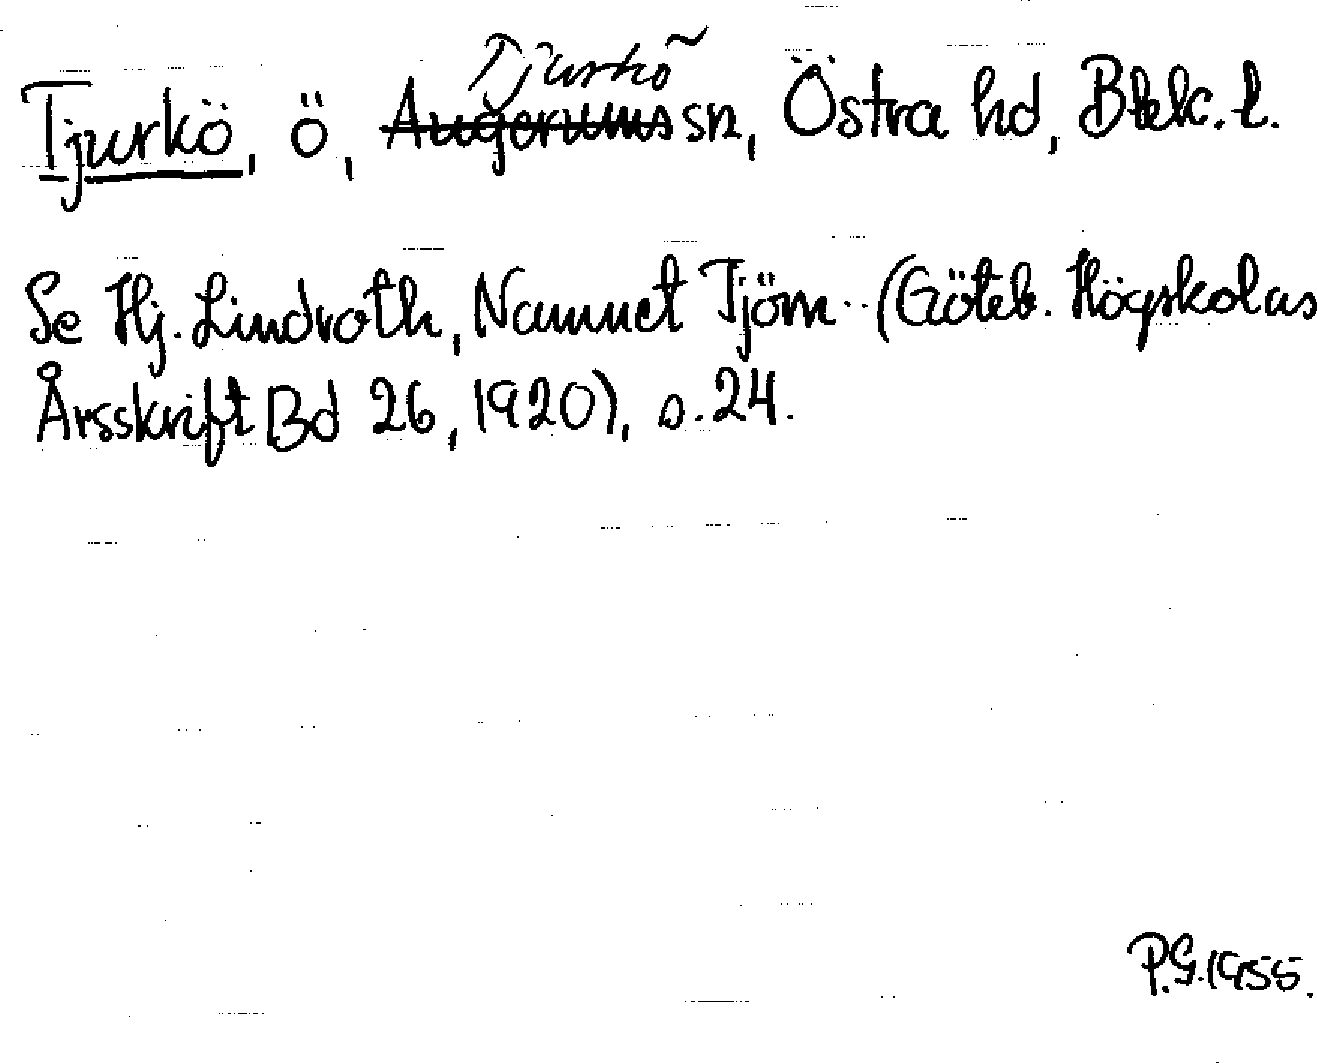 Tjurkö
Tjurkö, ö, Augerums sn, Östra hd, Blek. l.
Se Hj. Lindroth, Namnet Tjörn.. (Göteb. Högskolas
Årsskrift Bd 26, 1920), s. 24.
P.G. 1955.